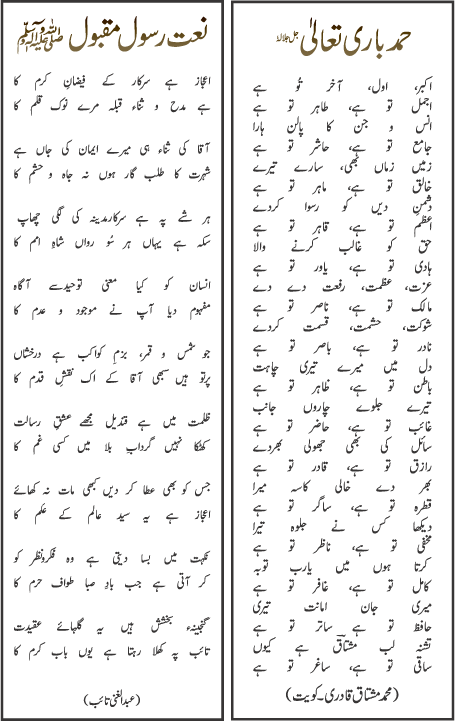 حمد باری تعالیٰ جل جلالہٗ
اکبر، اول، آخر تُو ہے
اجمل تو ہے، طاہر تو ہے
انس و جن کا پالن ہارا
جامع تو ہے، حاشر تو ہے
زمیں زماں بھی، سارے تیرے
خالق تو ہے، ماہر تو ہے
دشمنِ دیں کو رسوا کردے
اعظم تو ہے، قاہر تو ہے
حق کو غالب کرنے والا
ہادی تو ہے، یاور تو ہے
عزت، عظمت، رفعت دے دے
مالک تو ہے، ناصر تو ہے
شوکت، حشمت، قسمت کردے
نادر تو ہے، باصر تو ہے
دل میں میرے تیری چاہت
باطن تو ہے، ظاہر تو ہے
تیرے جلوے چاروں جانب
غائب تو ہے، حاضر تو ہے
سائل کی بھی جھولی بھردے
رازق تو ہے، قادر تو ہے
بھر دے خالی کاسہ میرا
قطرہ تو ہے، ساگر تو ہے
دیکھا کس نے جلوہ تیرا
مخفی تو ہے، ناظر تو ہے
کرتا ہوں میں یارب توبہ
کامل تو ہے، غافر تو ہے
میری جان امانت تیری
حافظ تو ہے ساتر تو ہے
تشنہ لب مشتاقؔ ہے کیوں
ساقی تو ہے، ساغر تو ہے
(محمد مشتاق قادری۔ کویت)
نعت رسول مقبول ﷺ
اعجاز ہے سرکار کے فیضانِ کرم کا
ہے مدح و ثناء قبلہ مرے نوک قلم کا
آقا کی ثناء ہی میرے ایمان کی جاں ہے
شہرت کا طلب گار ہوں نہ جاہ و حشم کا
ہر شے پہ ہے سرکار مدینہ کی لگی چھاپ
سکہ ہے یہاں ہر سُو رواں شاہِ امم کا
انسان کو کیا معنی توحید سے آگاہ
مفہوم دیا آپ نے موجود و عدم کا
جو شمس و قمر، بزم کواکب ہے درخشاں
پرتو ہیں سبھی آقا کے اک نقشِ قدم کا
ظلمت میں ہے قندیل مجھے عشقِ رسالت
کھٹکا نہیں گردابِ بلا میں کسی غم کا
جس کو بھی عطا کر دیں کبھی مات نہ کھائے
اعجاز ہے یہ سید عالم کے علَم کا
نکہت میں بسا دیتی ہے وہ فکر و نظر کو
کر آتی ہے جب بادِ صبا طواف حرم کا
گنجینۂ بخشش ہیں یہ گلہائے عقیدت
تائب پہ کھلا رہتا ہے یوں باب کرم کا
(عبدالغنی تائب)